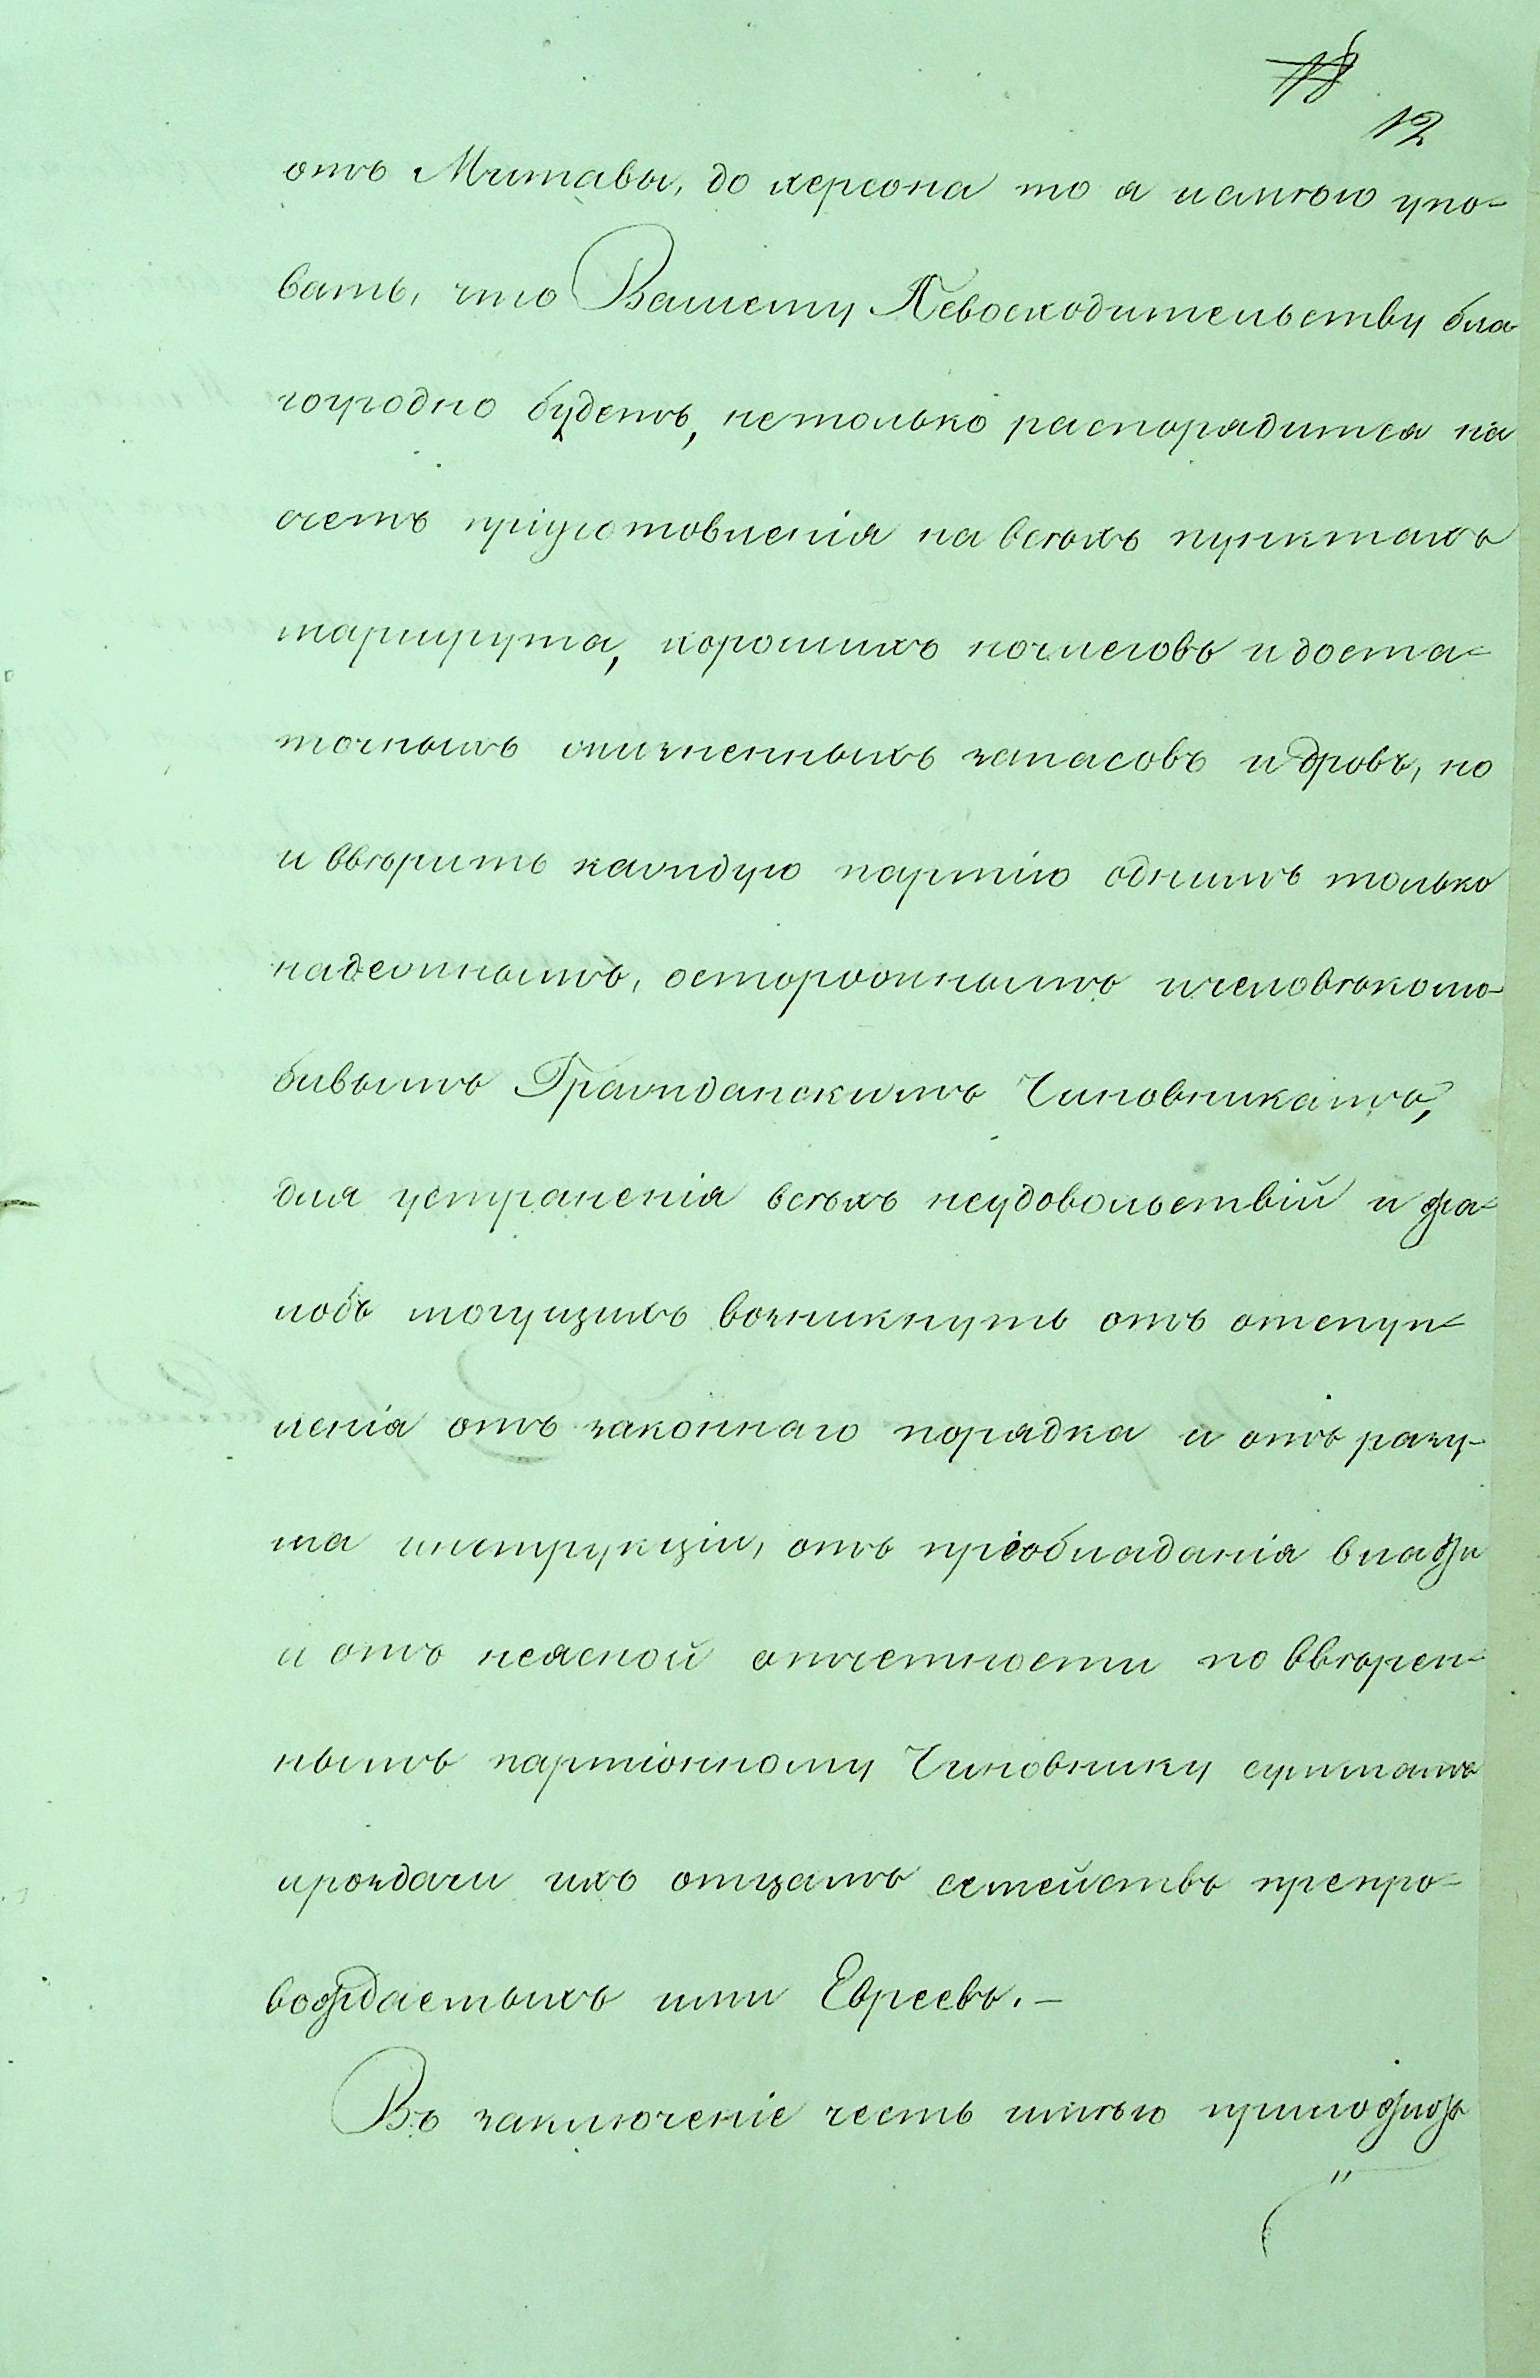 18
12
отъ Митавы, до херсона то я и смѣю упо-
вать, что Вашему Превосходительству бла
гоугодно будетъ, нетолько распорядится на
счетъ пріуготовленія на всѣхъ пунктахъ
маршрута, хорошихъ ночлеговъ и доста-
точныхъ жизненныхъ запасовъ и дровъ, но
и ввѣрить каждую партію однимъ только
надежнымъ, осторожнымъ и человѣколю-
бивымъ Гражданскимъ Чиновникамъ,
для устраненія всѣхъ неудовольствій и жа-
лобъ могущихъ возникнуть отъ отступ-
ленія отъ законнаго порядка и отъ разу-
ма инструкціи, отъ преобладанія влажи
и отъ неясной отчетности по ввѣрен-
нымъ партіонному Чиновнику суммамъ
и роздачи ихъ отцамъ семействъ препро-
вождаемыхъ ими Евреевъ. –
Въ заключеніе честь имѣю приложить